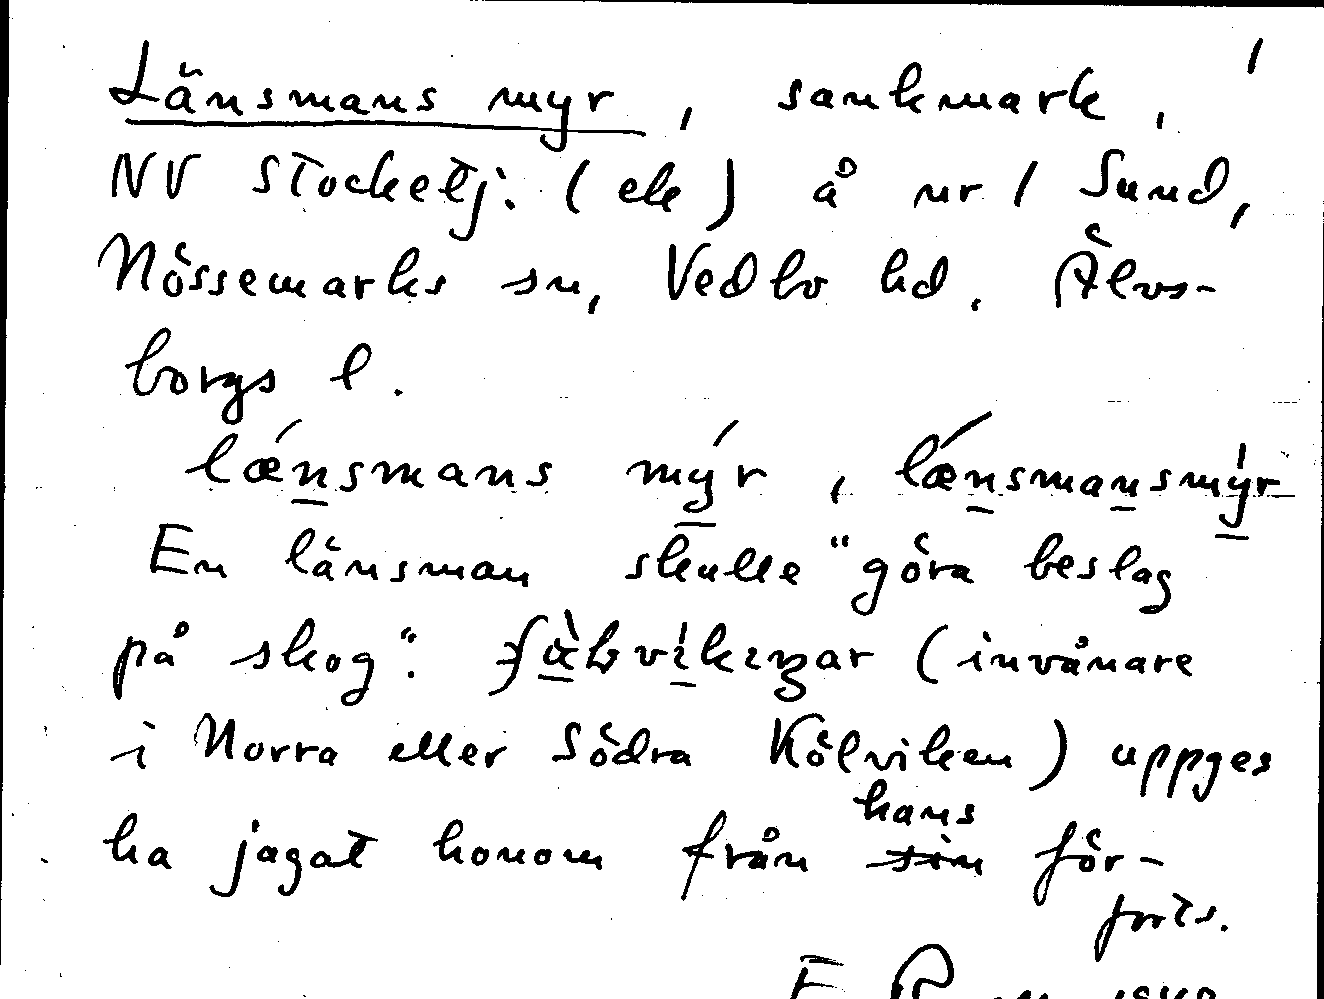 1
Länsmans myr, sankmark,
NV Stocketj. (ek) å nr 1 Sund,
Nössemarks sn, Vedbo hd. Älvs-
borgs l.
lǽnsmans mýr, lǽnsmansmýr
En länsman skulle "göra beslag
på skog". (invånare
i Norra eller Södra Kölviken) uppges
ha jagat honom från ~~sin~~ hans för-
forts.